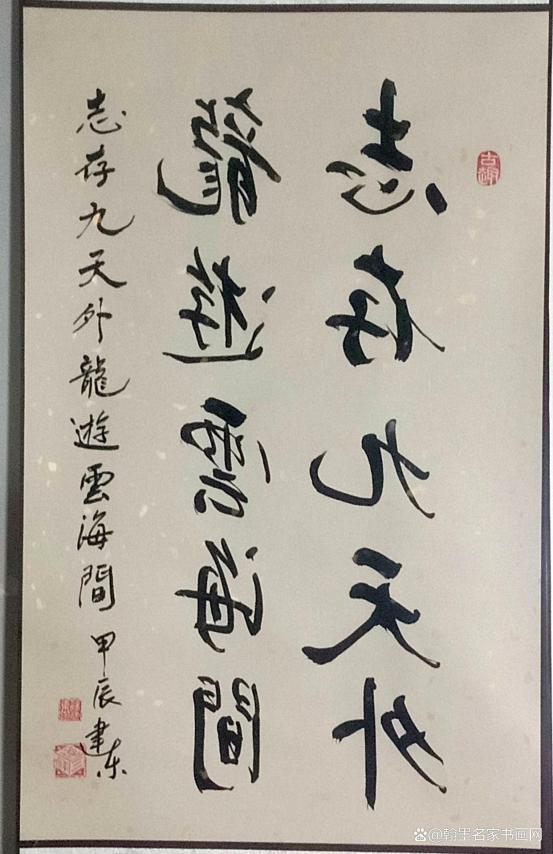 古趣
志存九天外
龍遊雲海間
志存九天外龍遊雲海間 甲辰建东
@翰墨名家书画网